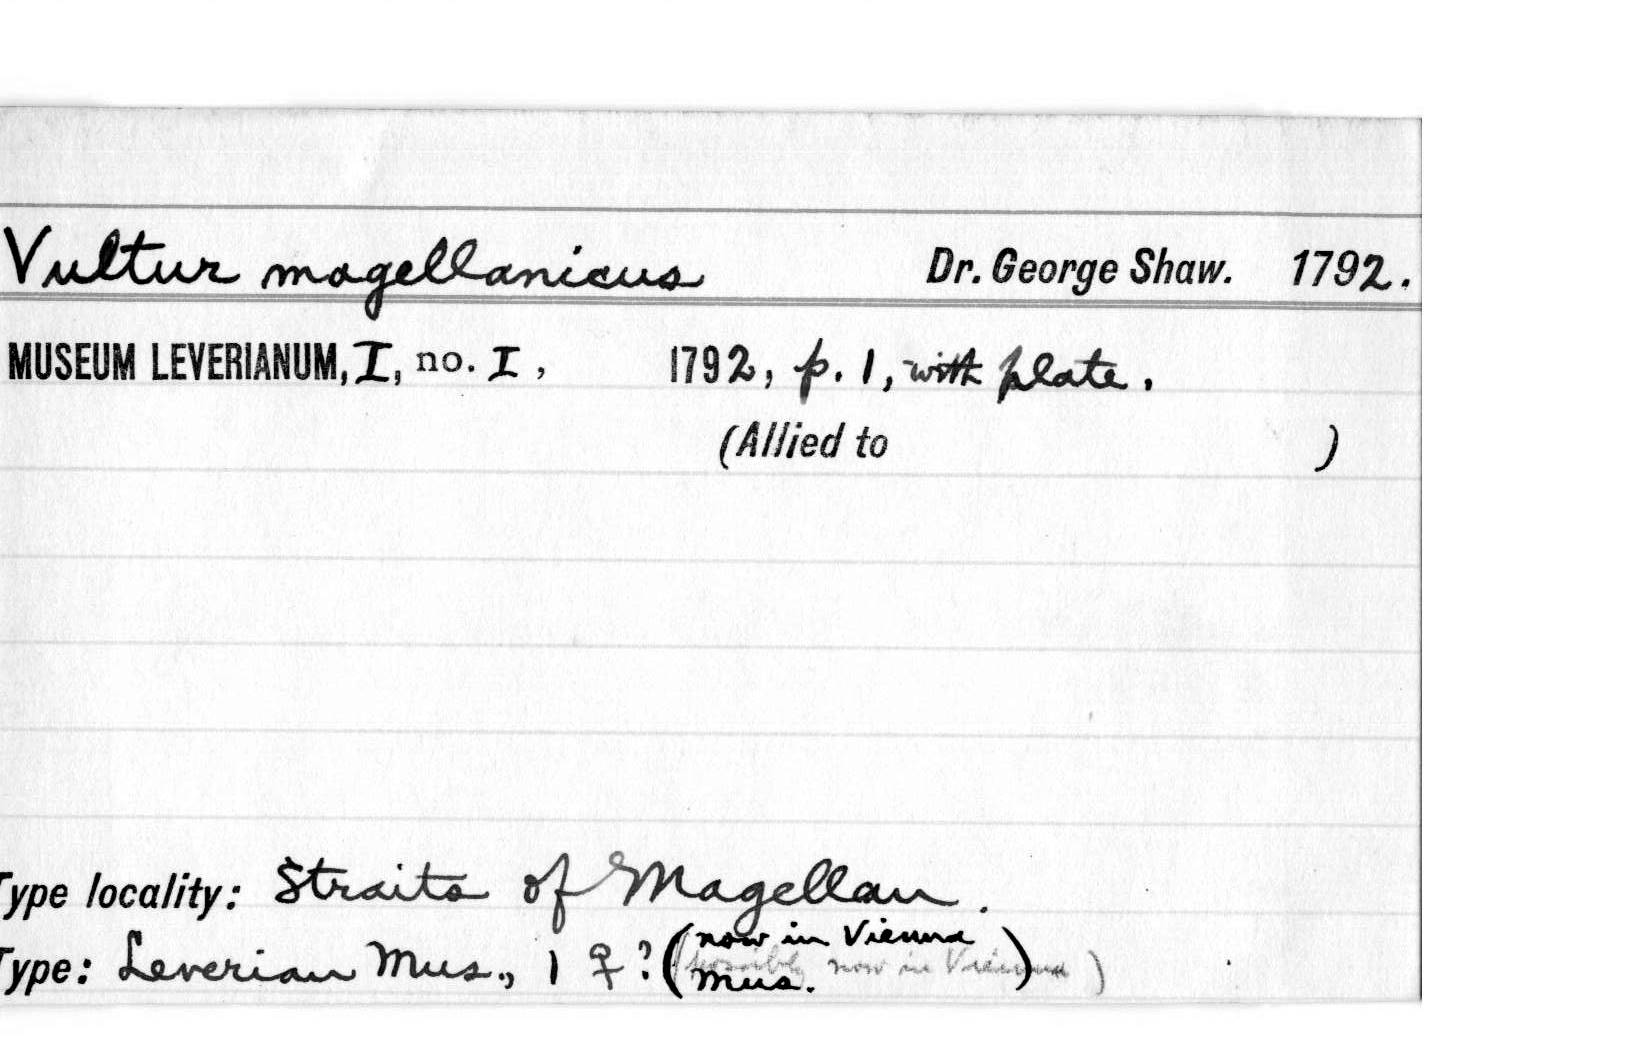 Vultur magellanicus Dr. George Shaw. 1792.
MUSEUM LEVERIANUM, I, no. I, 1792, p. 1, with plate.
(Allied to )
Type locality: Straits of Magellan.
Type: Leverian Mus., 1 ♀? (now in Vienna Mus.)
(possibly now in Vienna)